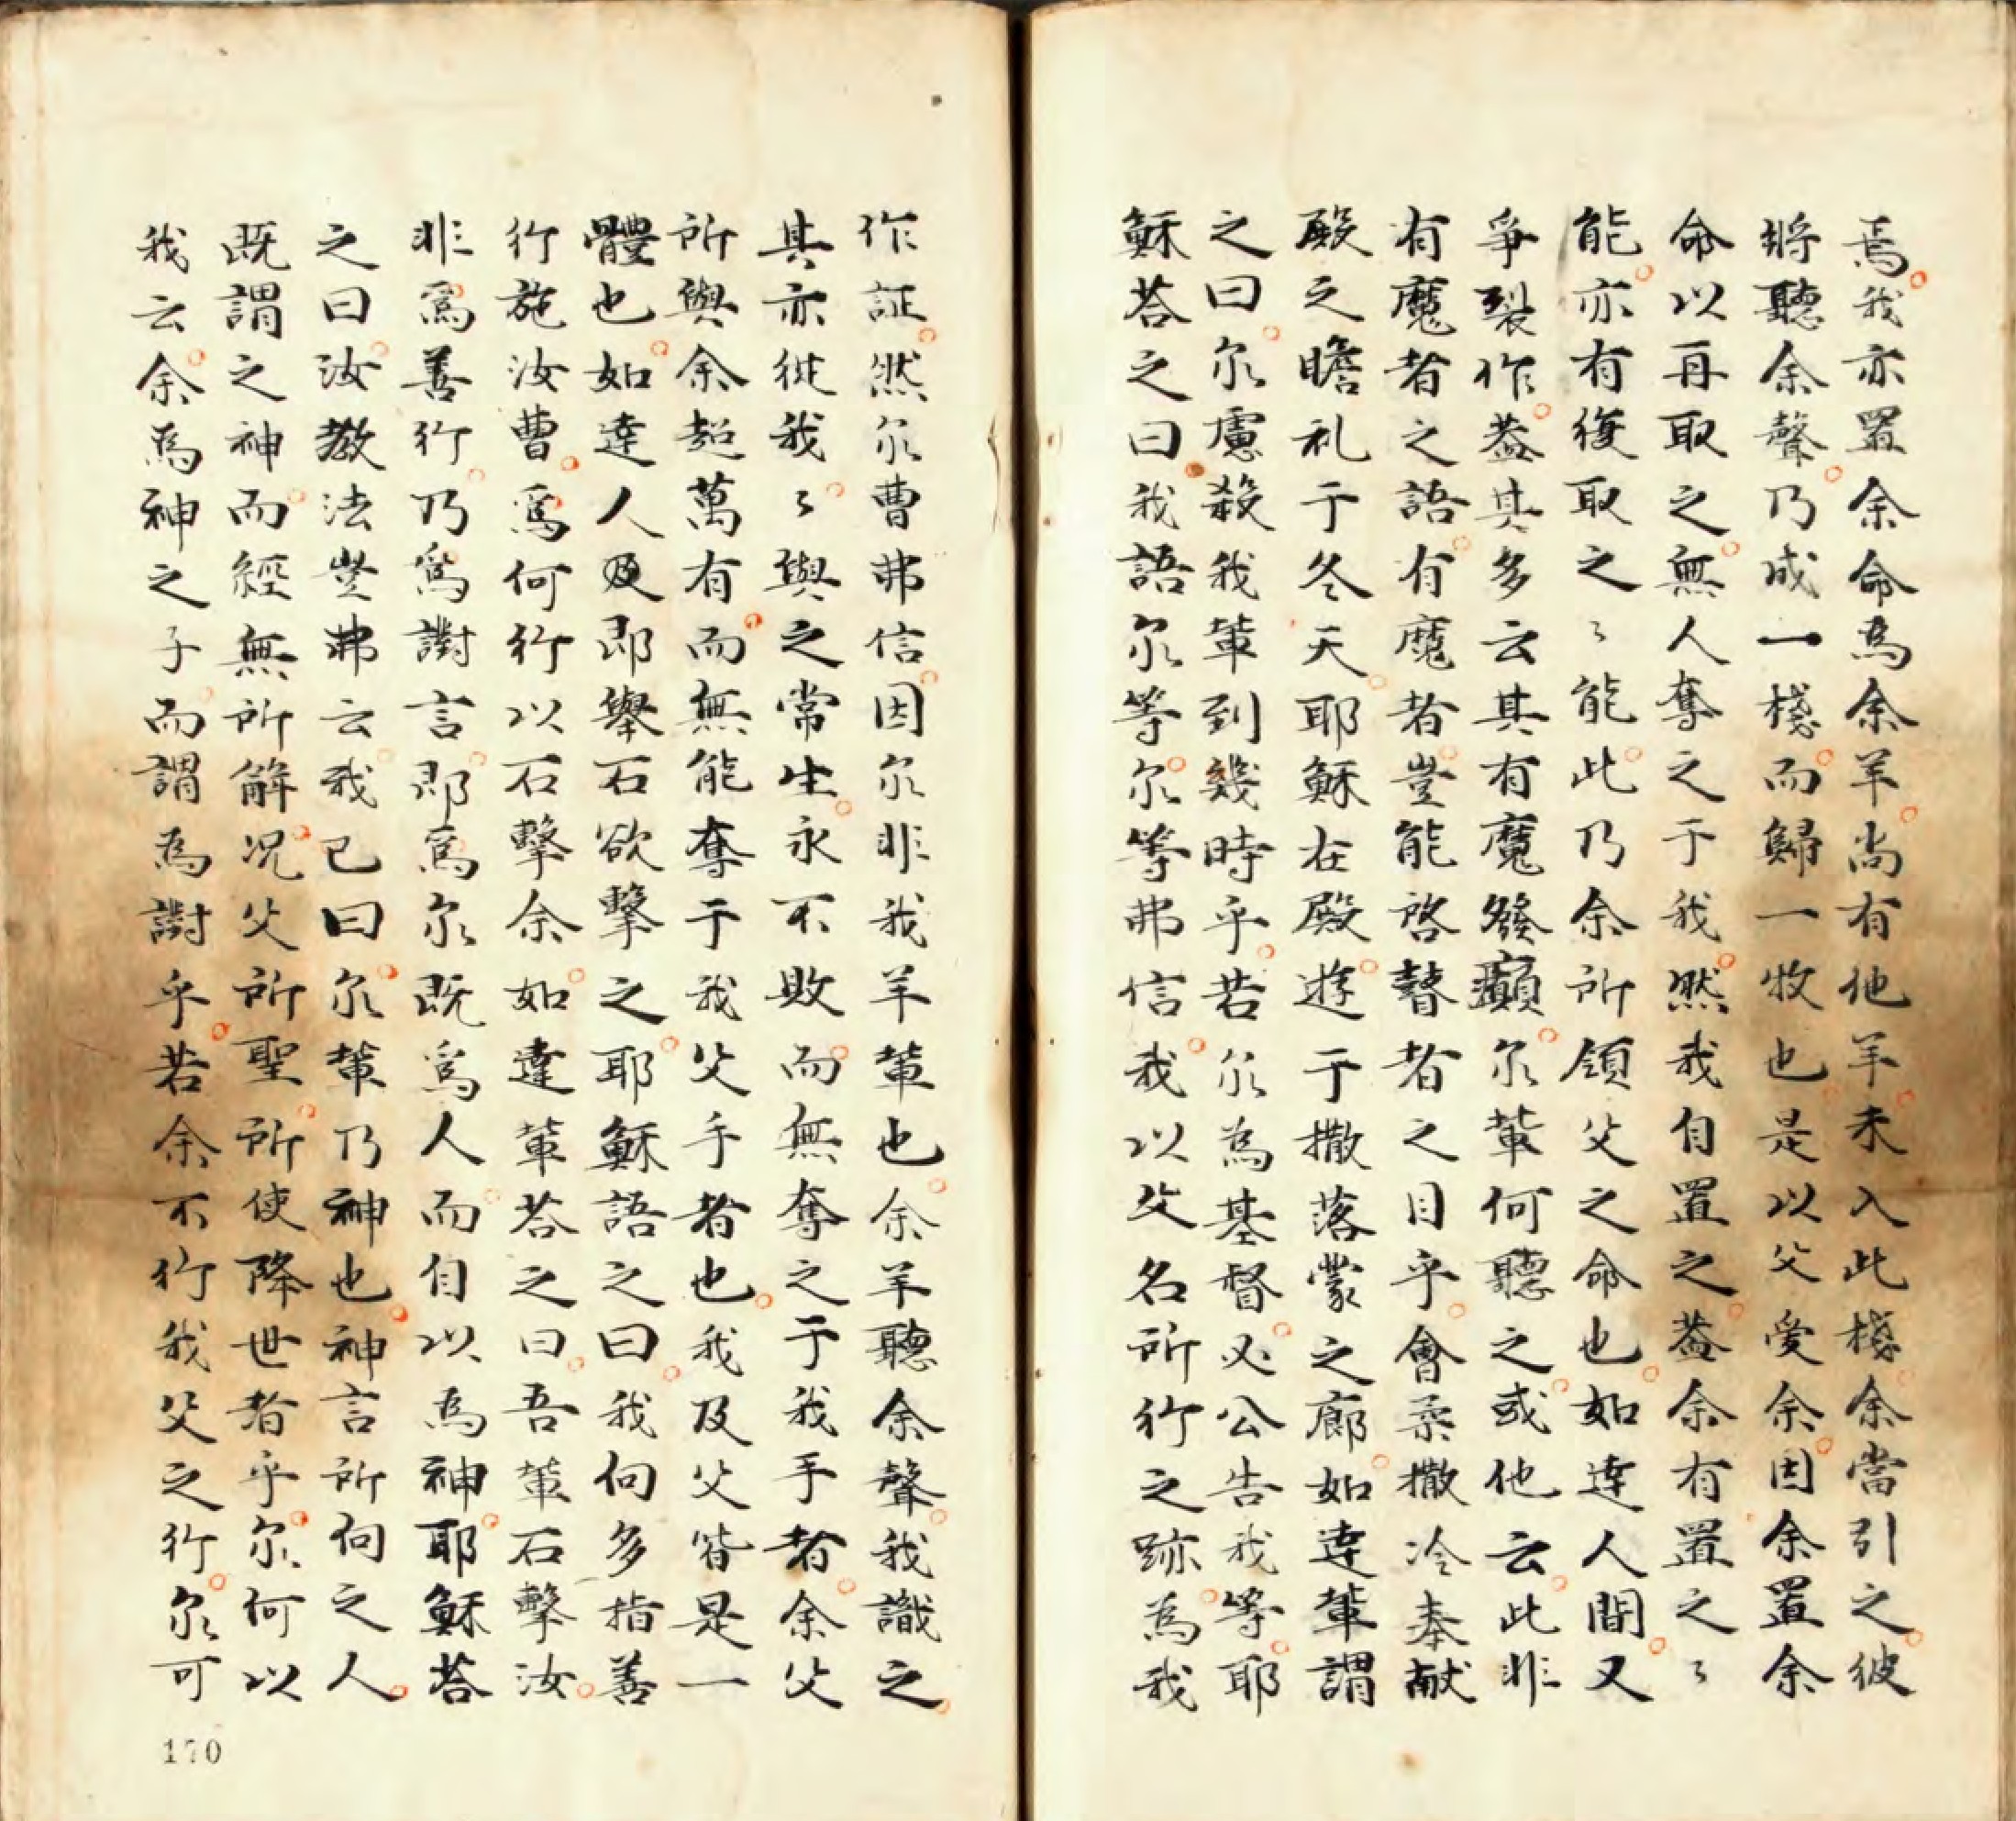 焉我亦置余命爲余羊尚有他羊未入此棧余當引之彼
將聽余聲乃成一棧而歸一牧也是以父愛余因余置余
命以再取之無人奪之于我然我自置之葢余有置之〻
能亦有復取之〻能此乃余所領父之命也如達人間又
爭裂作葢其多云其有魔發癲尔輩何聽之或他云此非
有魔者之語有魔者豈能啓瞽者之目乎會柔撒冷奉献
殿之瞻礼于冬天耶穌在殿遊于撒落蒙之廊如達輩謂
之曰尔慮殺我輩到幾時乎若尔為基督必公告我等耶
穌荅之曰我語尔等尔等弗信我以父名所行之跡為我
作証然尔曹弗信因尔非我羊輩也余羊聽余聲我識之
其亦從我〻與之常生永不敗而無奪之于我手者余父
所與余超萬有而無能奪于我父手者也我及父皆是一
體也如達人及即舉石欲擊之耶穌語之曰我向多指善
行施汝曹爲何行以石擊余如達輩荅之曰吾輩石擊汝
非爲善行乃爲謝言即爲尔既爲人而自以為神耶穌荅
之曰汝教法豈弗云我已曰尔輩乃神也神言所向之人
既謂之神而經無所解况父所聖所使降世者乎尔何以
我云余爲神之子而謂爲謝乎若余不行我父之行尔可
170